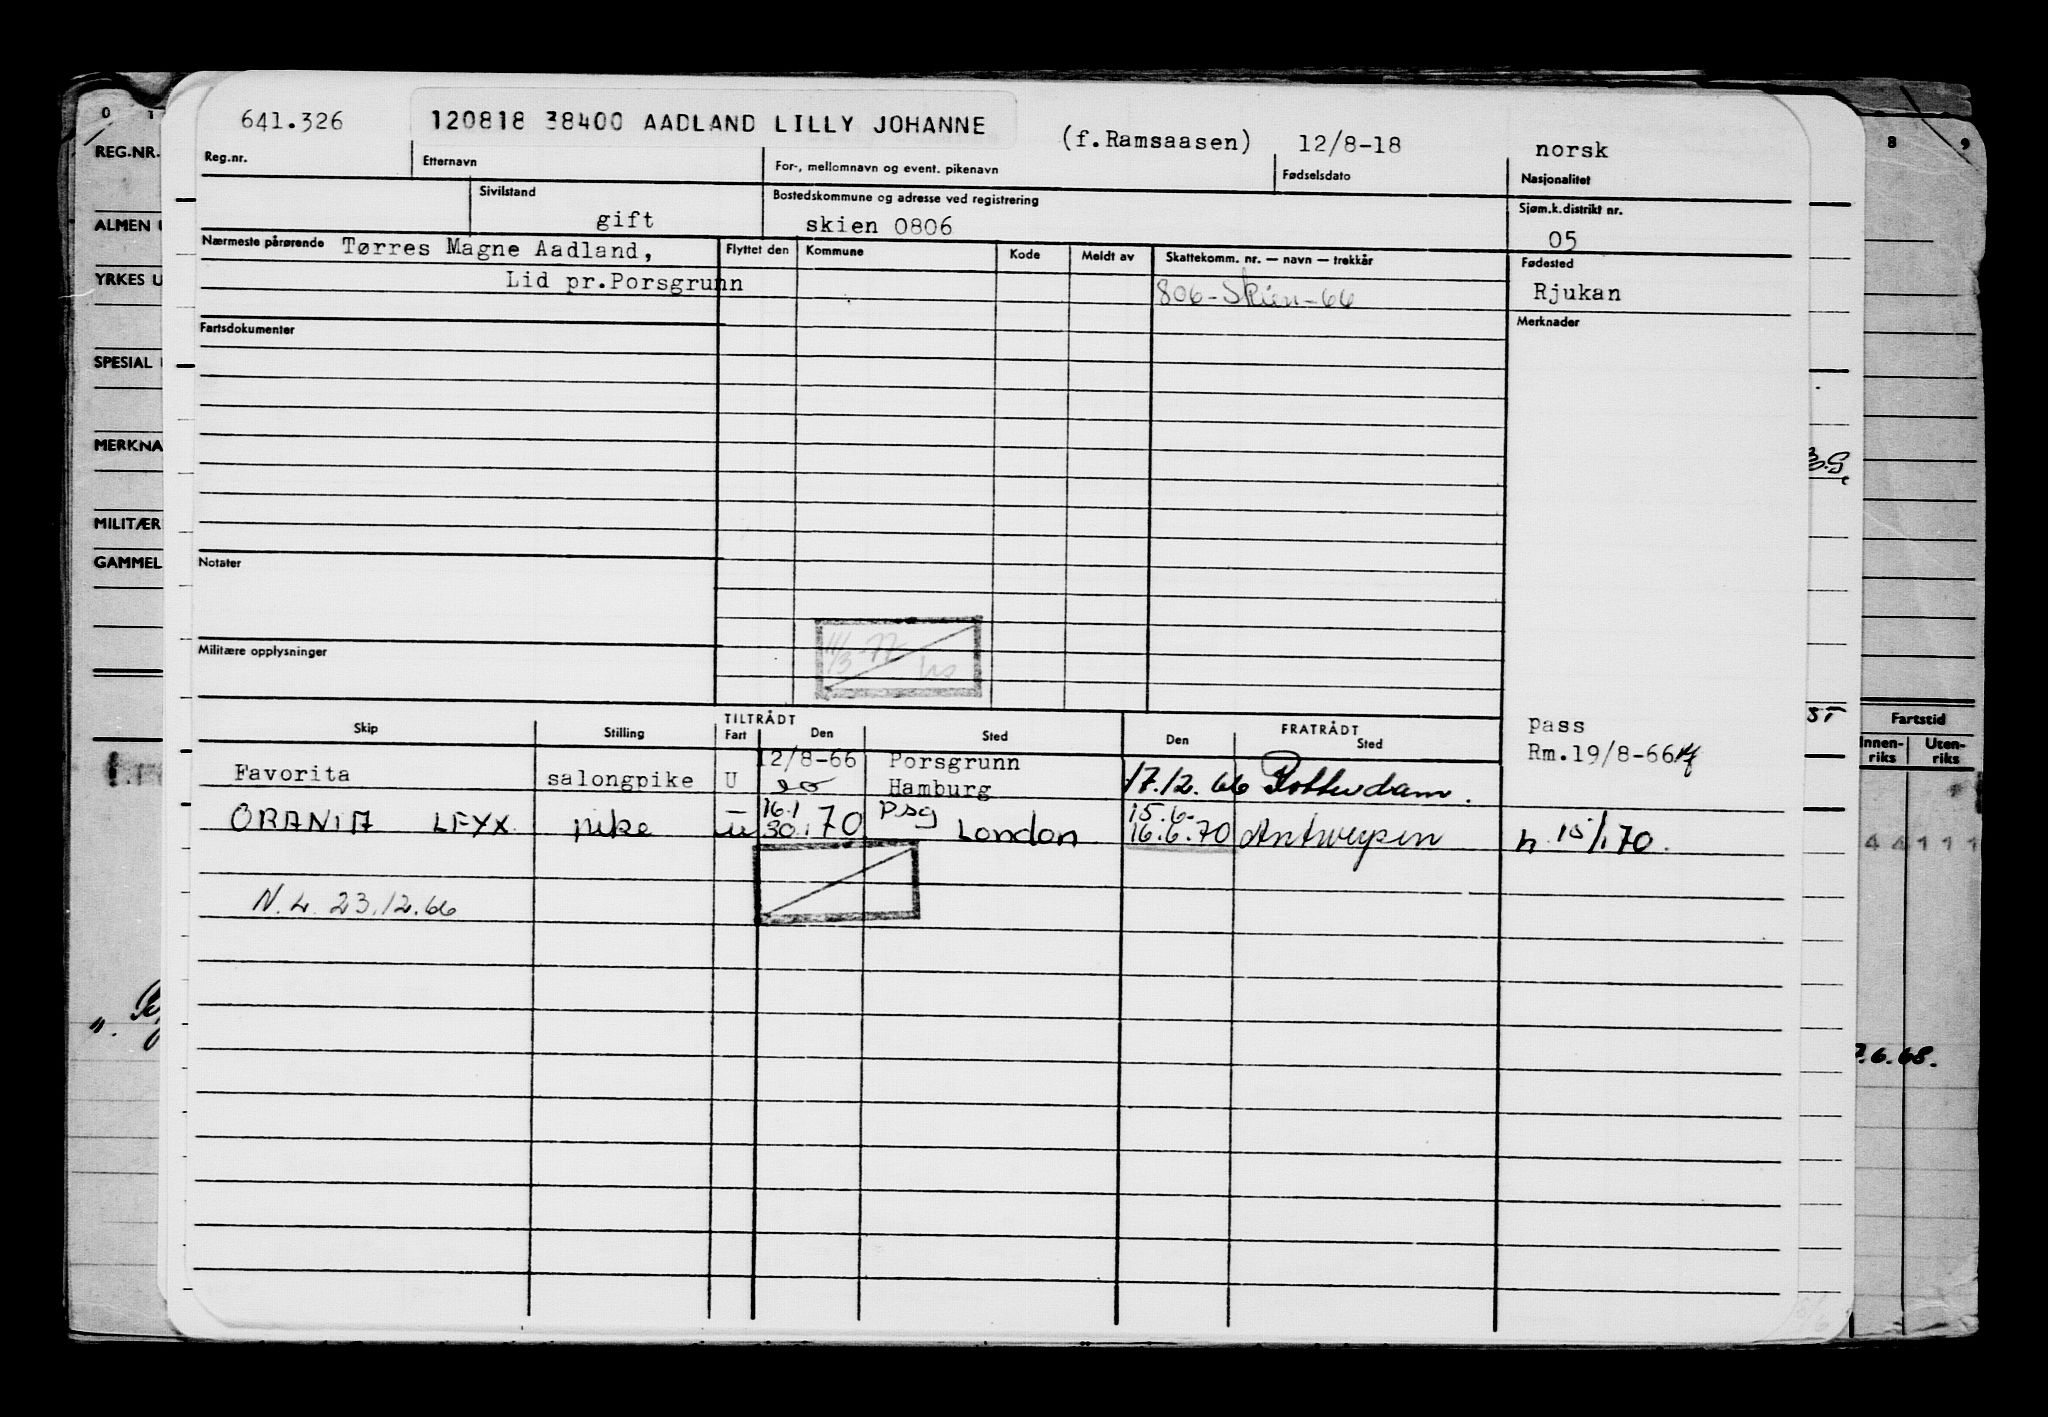 0 1
8 9
REG.NR.
641.326
120818 38400 AADLAND LILLY JOHANNE
(f.Ramsaasen)
12/8-18
norsk
Reg.nr.
Etternavn
For-, mellomnavn og event. pikenavn
Fødselsdato
Nasjonalitet
Sivilstand
Bostedskommune og adresse ved registrering
Sjøm.k.distrikt nr.
ALMEN U
gift
skien 0806
05
Nærmeste pårørende Tørres Magne Aadland,
Flyttet den
Kommune
Kode
Meldt av
Skattekomm. nr. — navn — trekkår
Fødested
YRKES U
Lid pr.Porsgrunn
806-Skien-66
Rjukan
Fartsdokumenter
Merknader
SPESIAL
MERKNA
MILITÆR
GAMMEL
Notater
11/3-77
Militære opplysninger
Skip
Stilling
TILTRÅDT
Fart
Den
Sted
FRATRÅDT
Den
Sted
pass
Rm.19/8-66
ST
Fartstid
Innen-
riks
Uten-
riks
Favorita
salongpike
U
12/8-66
Porsgrunn
Hamburg
17.12.66 Rotterdam.
ORANIA LEYX
pike
U
16.1
30.1 70
Psg
London
15.6.
16.6.70
Antwerpen
h 15/1 70.
4 4 1 1 1
N.L. 23.12.66
.6.68.